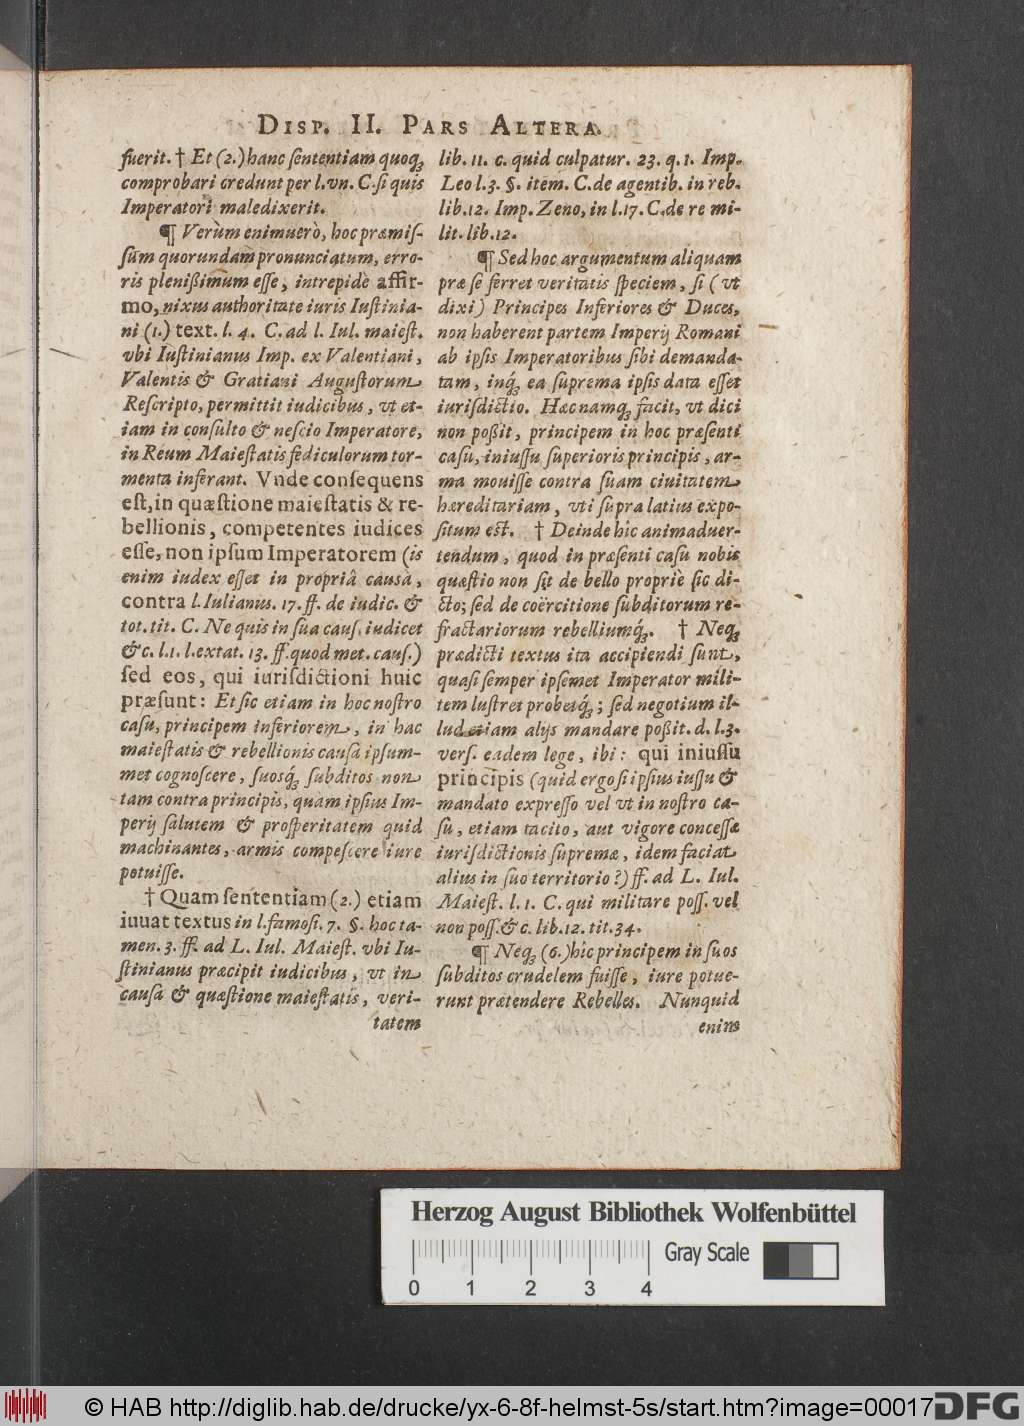 DISP. II. PARS ALTERA.
fuerit. † Et (2.) hanc ſententiam quoq́;
comprobari credunt per l. vn. C. ſi quis
Imperatori maledixerit.
¶ Verùm enimuerò, hoc præmiſ-
ſum quorundam pronunciatum, erro-
ris plenißimum eſſe, intrepidè affir-
mo, nixus authoritate iuris Iuſtinia-
ni (1.) text. l. 4. C. ad l. Iul. maieſt.
vbi Iuſtinianus Imp. ex Valentiani,
Valentis & Gratiani Auguſtorum
Reſcripto, permittit iudicibus, vt et-
iam in conſulto & neſcio Imperatore,
in Reum Maieſtatis fediculorum tor-
menta inferant. Vnde conſequens
eſt, in quæſtione maieſtatis & re-
bellionis, competentes iudices
eſſe, non ipſum Imperatorem (is
enim iudex eſſet in propriâ causâ,
contra l. Iulianus. 17. ff. de iudic. &
tot. tit. C. Ne quis in ſua cauſ. iudicet
& c. l. 1. l. extat. 13. ff. quod met. cauſ.)
ſed eos, qui iuriſdictioni huic
præſunt: Et ſic etiam in hoc noſtro
caſu, principem inferiorem, in hac
maieſtatis & rebellionis causâ ipſum-
met cognoſcere, ſuosq́; ſubditos non
tam contra principis, quàm ipſius Im-
perij ſalutem & proſperitatem quid
machinantes, armis compeſcere iure
potuiſſe.
† Quam ſententiam (2.) etiam
iuuat textus in l. famoſi. 7. §. hoc ta-
men. 3. ff. ad L. Iul. Maieſt. vbi Iu-
ſtinianus præcipit iudicibus, vt in
causâ & quæſtione maieſtatis, veri-
tatem
lib. 11. c. quid culpatur. 23. q. 1. Imp.
Leo l. 3. §. item. C. de agentib. in reb.
lib. 12. Imp. Zeno, in l. 17. C. de re mi-
lit. lib. 12.
¶ Sed hoc argumentum aliquam
præ ſe ferret veritatis ſpeciem, ſi (vt
dixi) Principes Inferiores & Duces,
non haberent partem Imperij Romani
ab ipſis Imperatoribus ſibi demanda-
tam, inq́; ea ſuprema ipſis data eſſet
iurisdictio. Hæc namq́; facit, vt dici
non poßit, principem in hoc præſenti
caſu, iniuſſu ſuperioris principis, ar-
ma mouiſſe contra ſuam ciuitatem
hæreditariam, vti ſupra latius expo-
ſitum eſt. † Deinde hîc animaduer-
tendum, quod in præſenti caſu nobis
quæſtio non ſit de bello propriè ſic di-
cto; ſed de coërcitione ſubditorum re-
fractariorum rebelliumq́;. † Neq́;
prædicti textus ita accipiendi ſunt,
quaſi ſemper ipſemet Imperator mili-
tem luſtret probetq́;; ſed negotium il-
lud etiam alijs mandare poßit. d. l. 3.
verſ. eadem lege, ibi: qui iniuſſu
principis (quid ergo ſi ipſius iuſſu &
mandato expreſſo vel vt in noſtro ca-
ſu, etiam tacito, aut vigore conceſſæ
iurisdictionis ſupremæ, idem faciat
alius in ſuo territorio?) ff. ad L. Iul.
Maieſt. l. 1. C. qui militare poſſ. vel
non poſſ. & c. lib. 12. tit. 34.
¶ Neq́; (6.) hîc principem in ſuos
ſubditos crudelem fuiſſe, iure potue-
runt prætendere Rebelles. Nunquid
enim
Herzog August Bibliothek Wolfenbüttel
Gray Scale
0 1 2 3 4
© HAB http://diglib.hab.de/drucke/yx-6-8f-helmst-5s/start.htm?image=00017
DFG